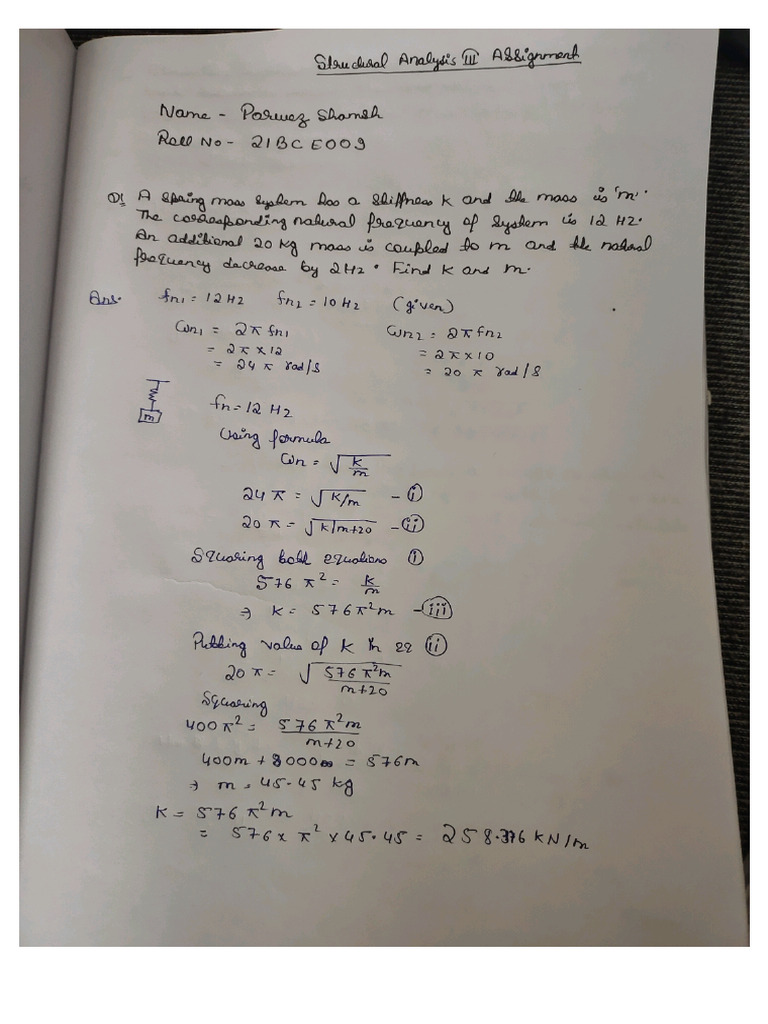 Structural Analysis III Assignment
Name - Parwez Shamsh
Roll No - 21BCE009
Q1 A spring mass system has a stiffness K and the mass is 'm'.
The corresponding natural frequency of system is 12 Hz.
An additional 20 Kg mass is coupled to m and the natural
frequency decrease by 2Hz. Find K and m.
Ans. fn₁ = 12 Hz fn₂ = 10 Hz (given)
ωn₁ = 2π fn₁ ωn₂ = 2π fn₂
= 2π × 12 = 2π × 10
= 24 π rad/s = 20 π rad/s
m
fn = 12 Hz
Using formula
ωn = √(k/m)
24 π = √(K/m) - (i)
20 π = √(K/m+20) - (ii)
Squaring both equations (i)
576 π² = k/m
⇒ K = 576 π² m - (iii)
Putting value of K in eq (ii)
20 π = √(576 π² m / m+20)
Squaring
400 π² = 576 π² m / m+20
400m + 8000 = 576m
⇒ m = 45.45 kg
K = 576 π² m
= 576 × π² × 45.45 = 258.376 KN/m